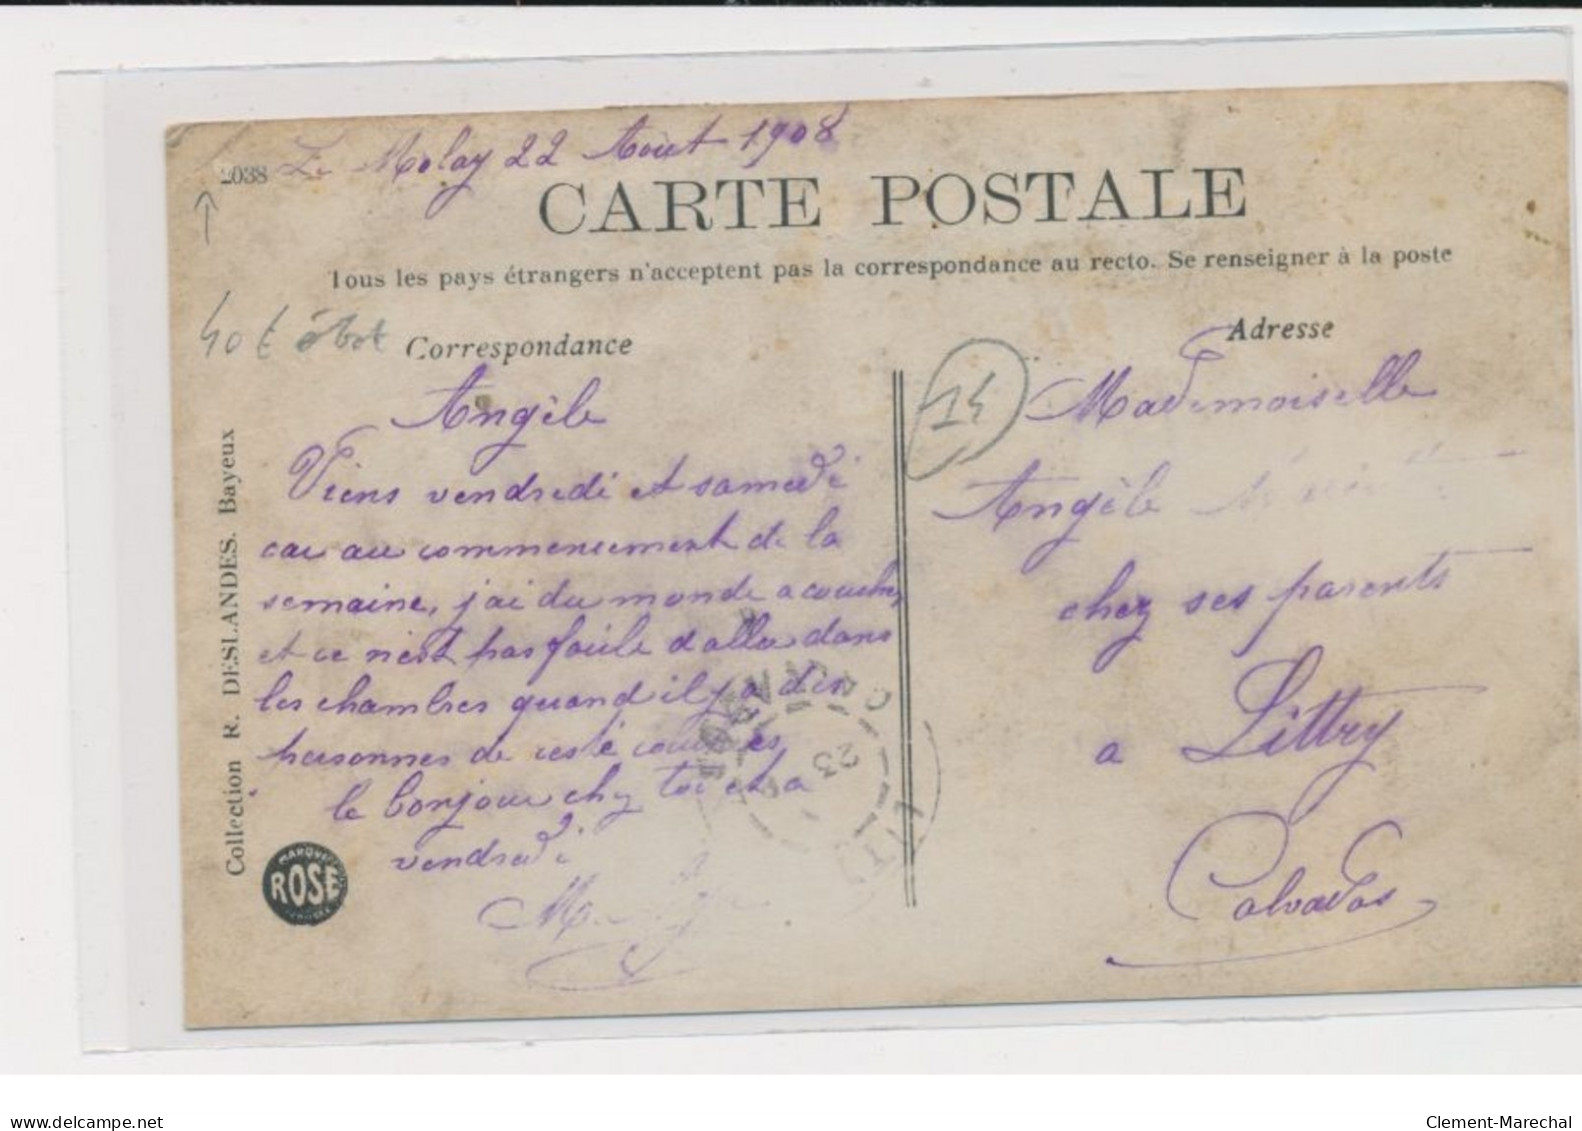 2038 Le Molay 22 Aout 1908
CARTE POSTALE
Tous les pays étrangers n'acceptent pas la correspondance au recto. Se renseigner à la poste
40 €
Correspondance
Angèle
Viens vendredi et samedi
car au commencement de la
semaine, j'ai du monde a coucher
et ce n'est pas facile d'aller dans
les chambres quand il y a des
personnes de couchées
le bonjour chez toi et a
vendredi
Collection R. DESLANDES. Bayeux
MARQUE
ROSE
23
Adresse
14
Mademoiselle
Angèle
chez ses parents
a Littry
Calvados
delcampe.net
Clement-Marechal